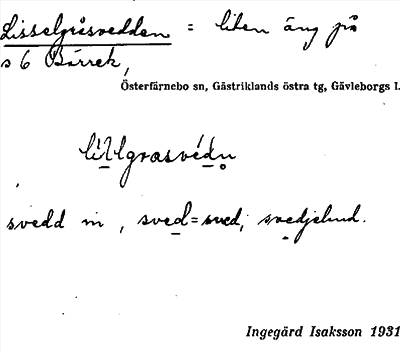 Lisselgråsvedden = liten äng på
s 6 Bärrek,
Österfärnebo sn, Gästriklands östra tg, Gävleborgs l.
lillgrasvédn
svedd m, sved = sved, svedjelund.
Ingegärd Isaksson 1931